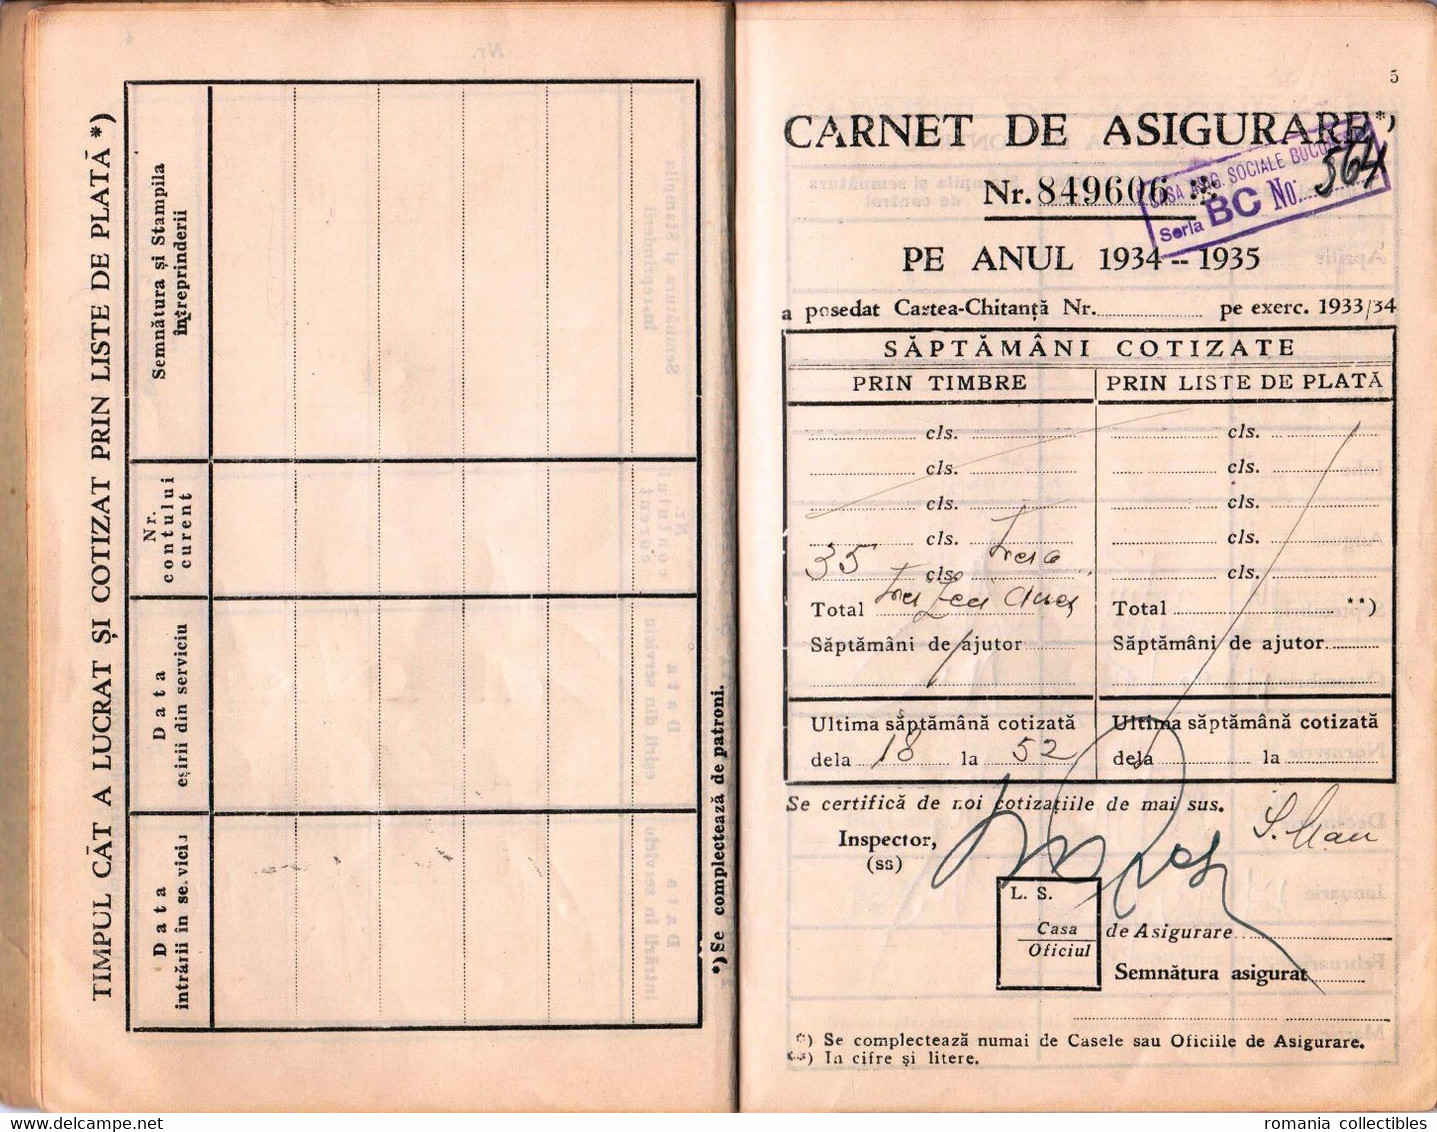 TIMPUL CĂT A LUCRAT ȘI COTIZAT PRIN LISTE DE PLATĂ *)
Semnătura și Stampila
întreprinderii
Nr.
contului
curent
Data
eșirii din serviciu
Data
intrării în serviciu
*) Se complectează de patroni.
5
CARNET DE ASIGURARE*)
CASA ASIG. SOCIALE BUCUREȘTI
Seria BC No: 564
Nr. 849606
PE ANUL 1934 -- 1935
a posedat Cartea-Chitanță Nr. pe exerc. 1933/34
SĂPTĂMÂNI COTIZATE
PRIN TIMBRE
PRIN LISTE DE PLATĂ
cls. cls.
cls. cls.
cls. cls.
cls. cls.
35 cls. cls.
Total Total **)
Săptămâni de ajutor Săptămâni de ajutor
Ultima săptămână cotizată Ultima săptămână cotizată
dela 18 la 52 dela la
Se certifică de noi cotizațiile de mai sus.
Inspector,
(ss)
L. S.
Casa de Asigurare
Oficiul
Semnătura asigurat
*) Se complectează numai de Casele sau Oficiile de Asigurare.
**) In cifre și litere.
www.delcampe.net
romania collectibles